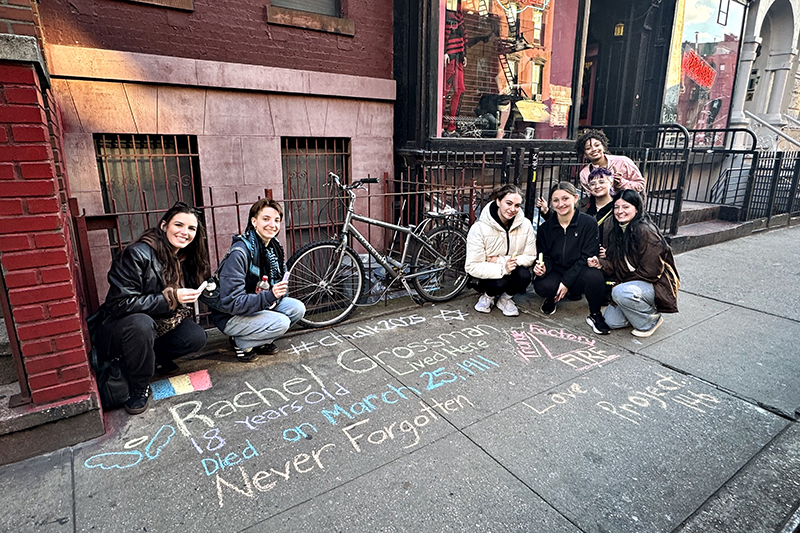 #Chalk2025
Rachel Grossman
Lived Here
18 years old
Died on March 25, 1911
Never Forgotten
Triangle
Factory
Fire
Love
Project 146